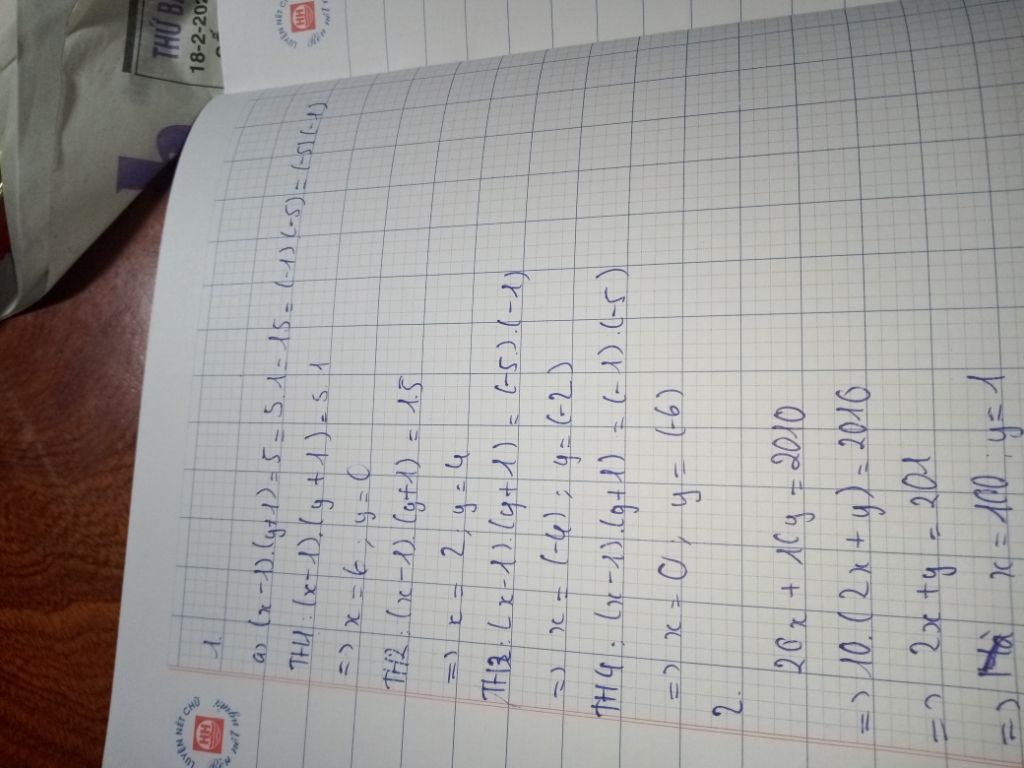 THỨ BẢ
18-2-202
LUYỆN NÉT CHỮ
HH
1.
a) (x-1).(y+1)=5=5.1=1.5=(-1)(-5)=(-5)(-1)
TH1: (x-1).(y+1)=5.1
=> x=6; y=0
TH2: (x-1).(y+1)=1.5
=> x=2, y=4
TH3: (x-1).(y+1)=(-5).(-1)
=> x=(-4); y=(-2)
TH4: (x-1).(y+1)=(-1).(-5)
=> x=0; y=(-6)
2.
20x+10y=2010
=> 10.(2x+y)=2010
=> 2x+y=201
=> x=100 y=1
LUYỆN NÉT CHỮ
HH